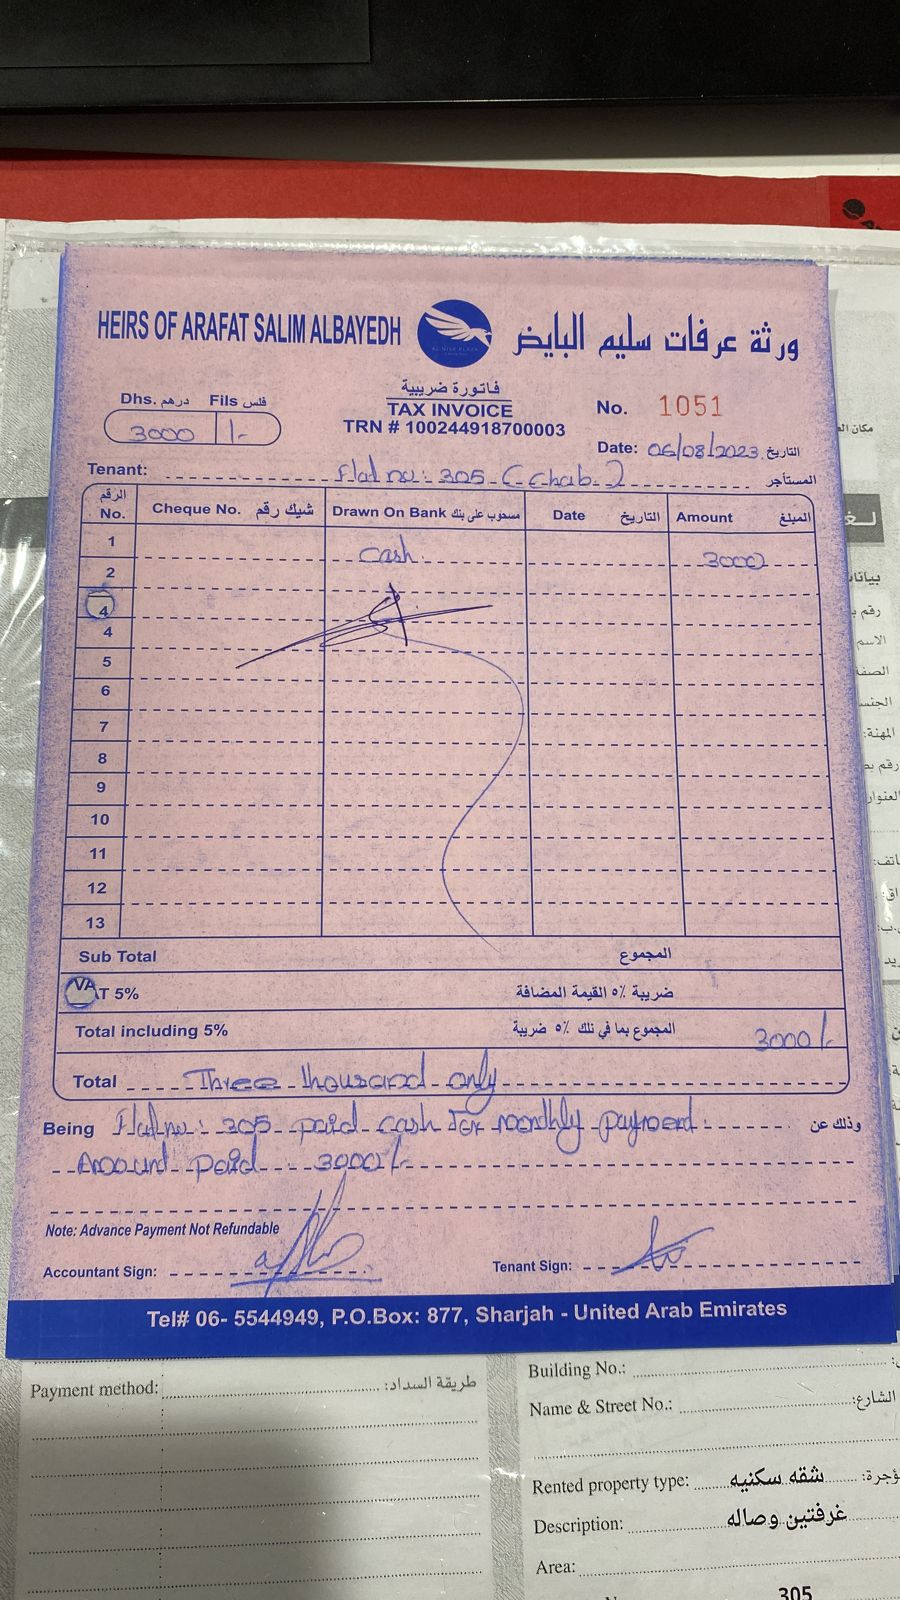 HEIRS OF ARAFAT SALIM ALBAYEDH ورثة عرفات سليم البايض
فاتورة ضريبية
TAX INVOICE
TRN # 100244918700003
Dhs. درهم Fils فلس
3000 /-
No. 1051
Date: 06/08/2023 التاريخ
Tenant: Flat no: 305 المستأجر
الرقم No. Cheque No. شيك رقم Drawn On Bank مسحوب على بنك Date التاريخ Amount المبلغ
1 Cash 3000
2
4
4
5
6
7
8
9
10
11
12
13
Sub Total المجموع
VAT 5% ضريبة ٥٪ القيمة المضافة
Total including 5% المجموع بما في ذلك ٥٪ ضريبة 3000/-
Total Three thousand only
Being Flat no: 305 paid cash for monthly payment وذلك عن
Amount paid 3000/-
Note: Advance Payment Not Refundable
Accountant Sign: Tenant Sign:
Tel# 06- 5544949, P.O.Box: 877, Sharjah - United Arab Emirates
Payment method: طريقة السداد:
Building No.:
Name & Street No.: الشارع:
Rented property type: شقه سكنيه
Description: غرفتين وصاله
Area:
305
مكان
رقم
الاسم
المهنة: